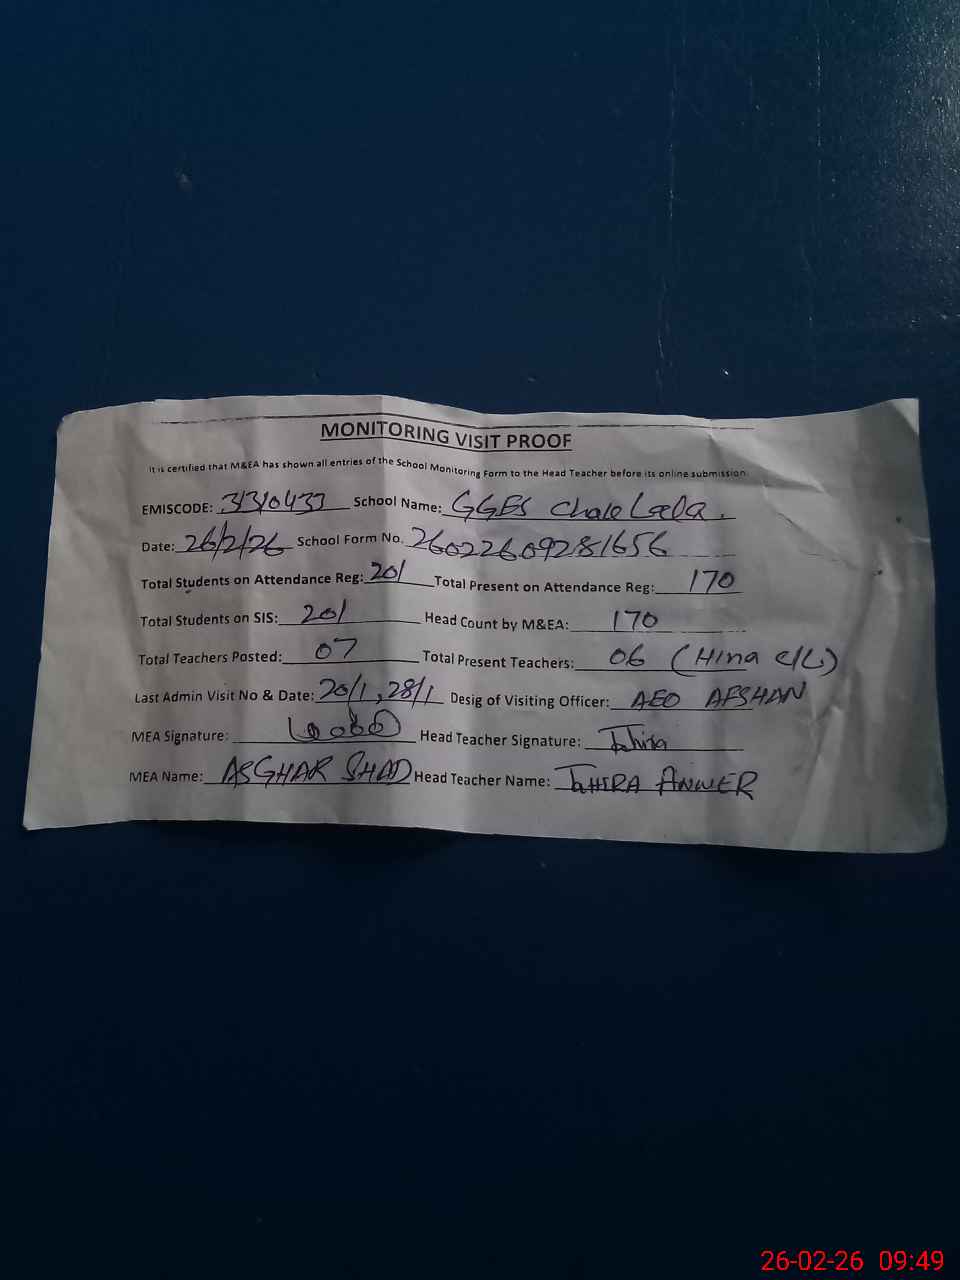 MONITORING VISIT PROOF
It is certified that M&EA has shown all entries of the School Monitoring Form to the Head Teacher before its online submission.
EMISCODE: School Name: GGES Chak Lala.
Date: 26/2/26 School Form No. 26022609281656
Total Students on Attendance Reg: 201 Total Present on Attendance Reg: 170
Total Students on SIS: 201 Head Count by M&EA: 170
Total Teachers Posted: 07 Total Present Teachers: 06 (Hina C/L)
Last Admin Visit No & Date: 20/1, 28/1 Desig of Visiting Officer: AEO AFSHAN
MEA Signature: Head Teacher Signature: Tahira
MEA Name: ASGHAR SHAD Head Teacher Name: TAHIRA ANWER
26-02-26 09:49